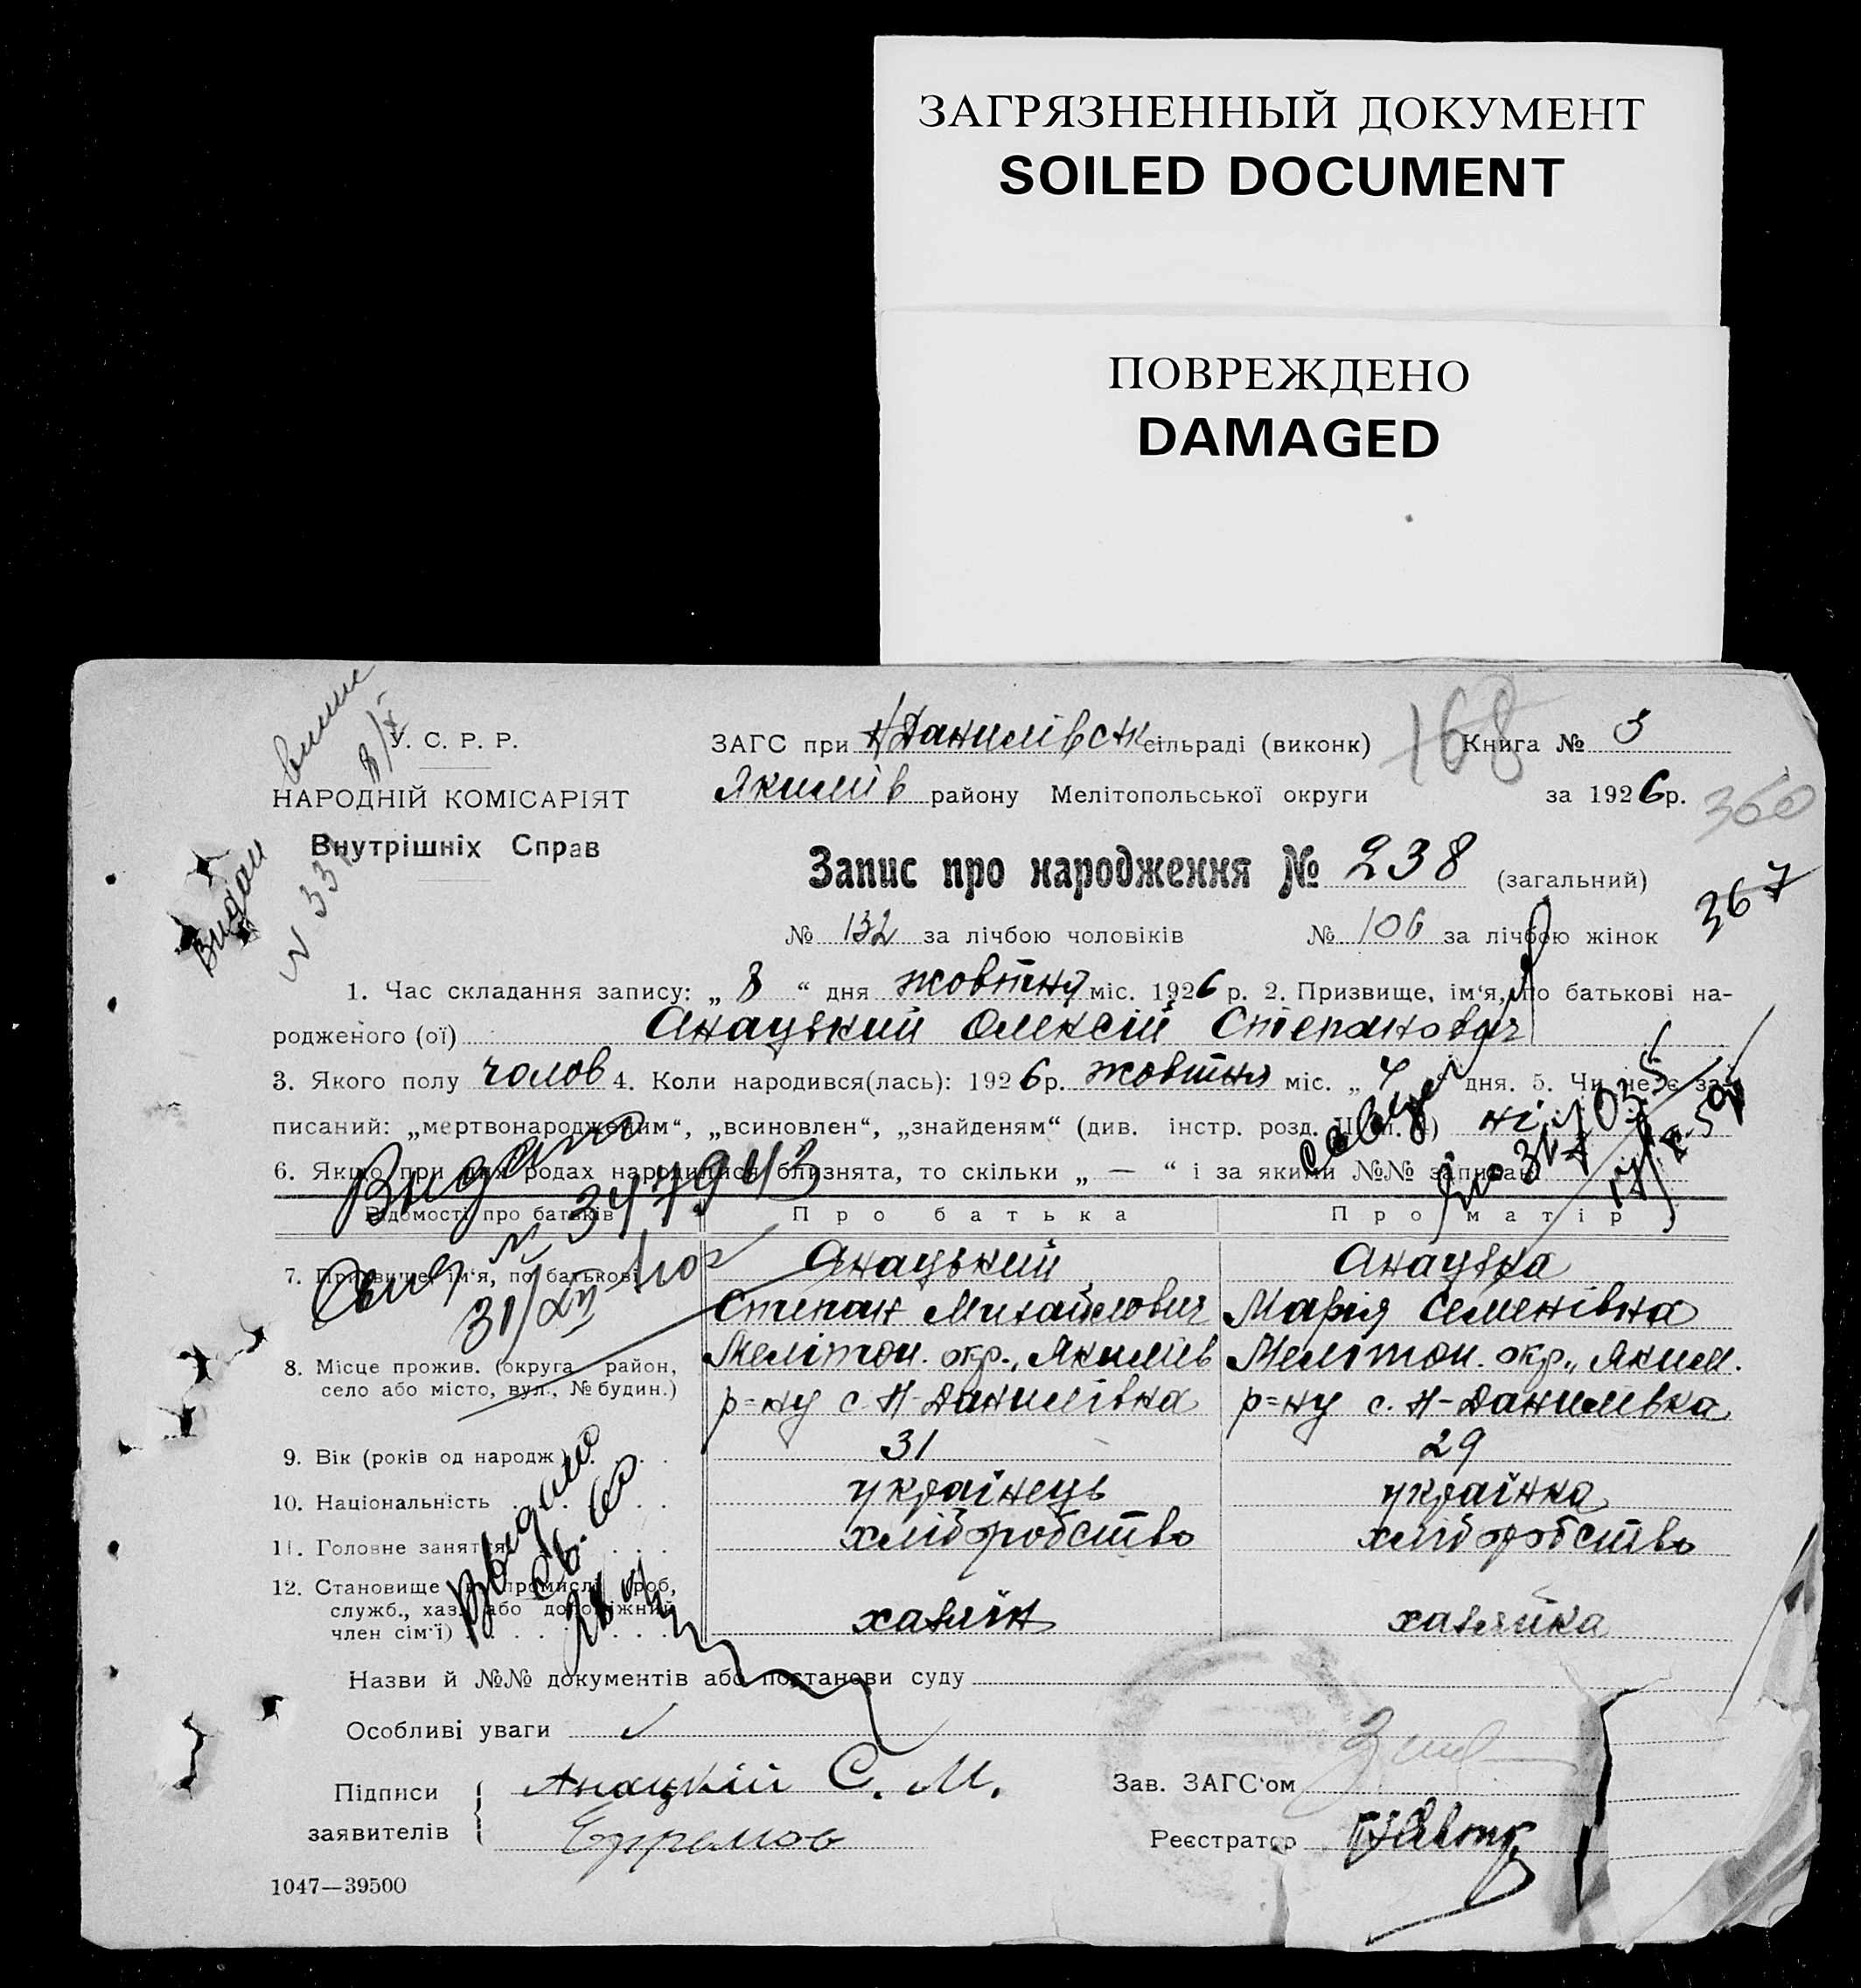 ЗАГРЯЗНЕННЫЙ ДОКУМЕНТ
SOILED DOCUMENT
ПОВРЕЖДЕНО
DAMAGED
У. С. Р. Р.
НАРОДНІЙ КОМІСАРІЯТ
Внутрішніх Справ
Видан
ЗАГС при Н Данилівск сільраді (виконк) Книга № 3
168
Якимів району Мелітопольської округи за 1926 р.
360
Запис про народження № 238 (загальний)
367
№ 132 за лічбою чоловіків № 106 за лічбою жінок
1. Час складання запису: „ 8 “ дня жовтня міс. 1926 р. 2. Призвище, ім‘я, по батькові на-
родженого (ої) Анацький Олексій Степанович
3. Якого полу чолов 4. Коли народився(лась): 1926 р. жовтня міс. „ 4 “ дня. 5. Чи не є за-
писаний: „мертвонародженим“, „всиновлен“, „знайденям“ (див. інстр. розд. ні
6. Якщо при цих родах народилися близнята, то скільки „ — “ і за якими №№ записані
Видано
Відомості про батьків Про батька Про матір
7. Призвище, ім‘я, по батькові Анацький Анацька
Степан Михайлович Марія Семенівна
8. Місце прожив. (округа, район, село або місто, вул., № будин.) Мелітоп. окр., Якимів Мелітоп. окр., Яким.
р=ну с. Н-Данилівка р=ну с. Н-Данилівка
9. Вік (років од народж.) 31 29
10. Національність українець українка
11. Головне заняття хліборобство хліборобство
12. Становище в промислі роб, служб., хаз. або допоміжний член сім‘ї) хазяїн хазяйка
Назви й №№ документів або постанови суду
Особливі уваги
Підписи заявителів Анацкій С. М.
Зав. ЗАГС‘ом
Реєстратор
1047—39500